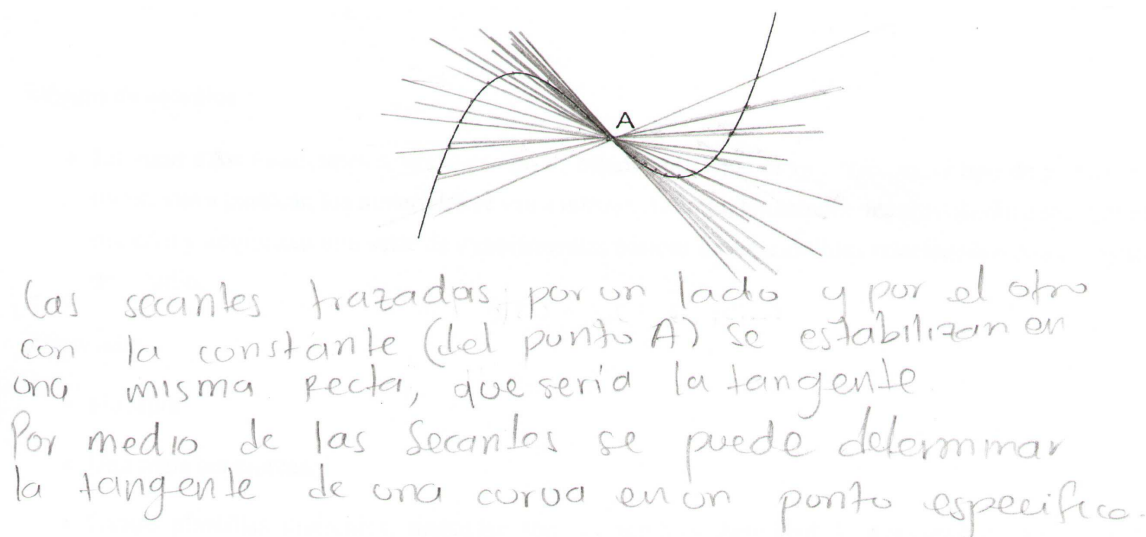 A
Las secantes trazadas por un lado y por el otro
con la constante (del punto A) se estabilizan en
una misma recta, que sería la tangente
Por medio de las secantes se puede determinar
la tangente de una curva en un punto especifico.